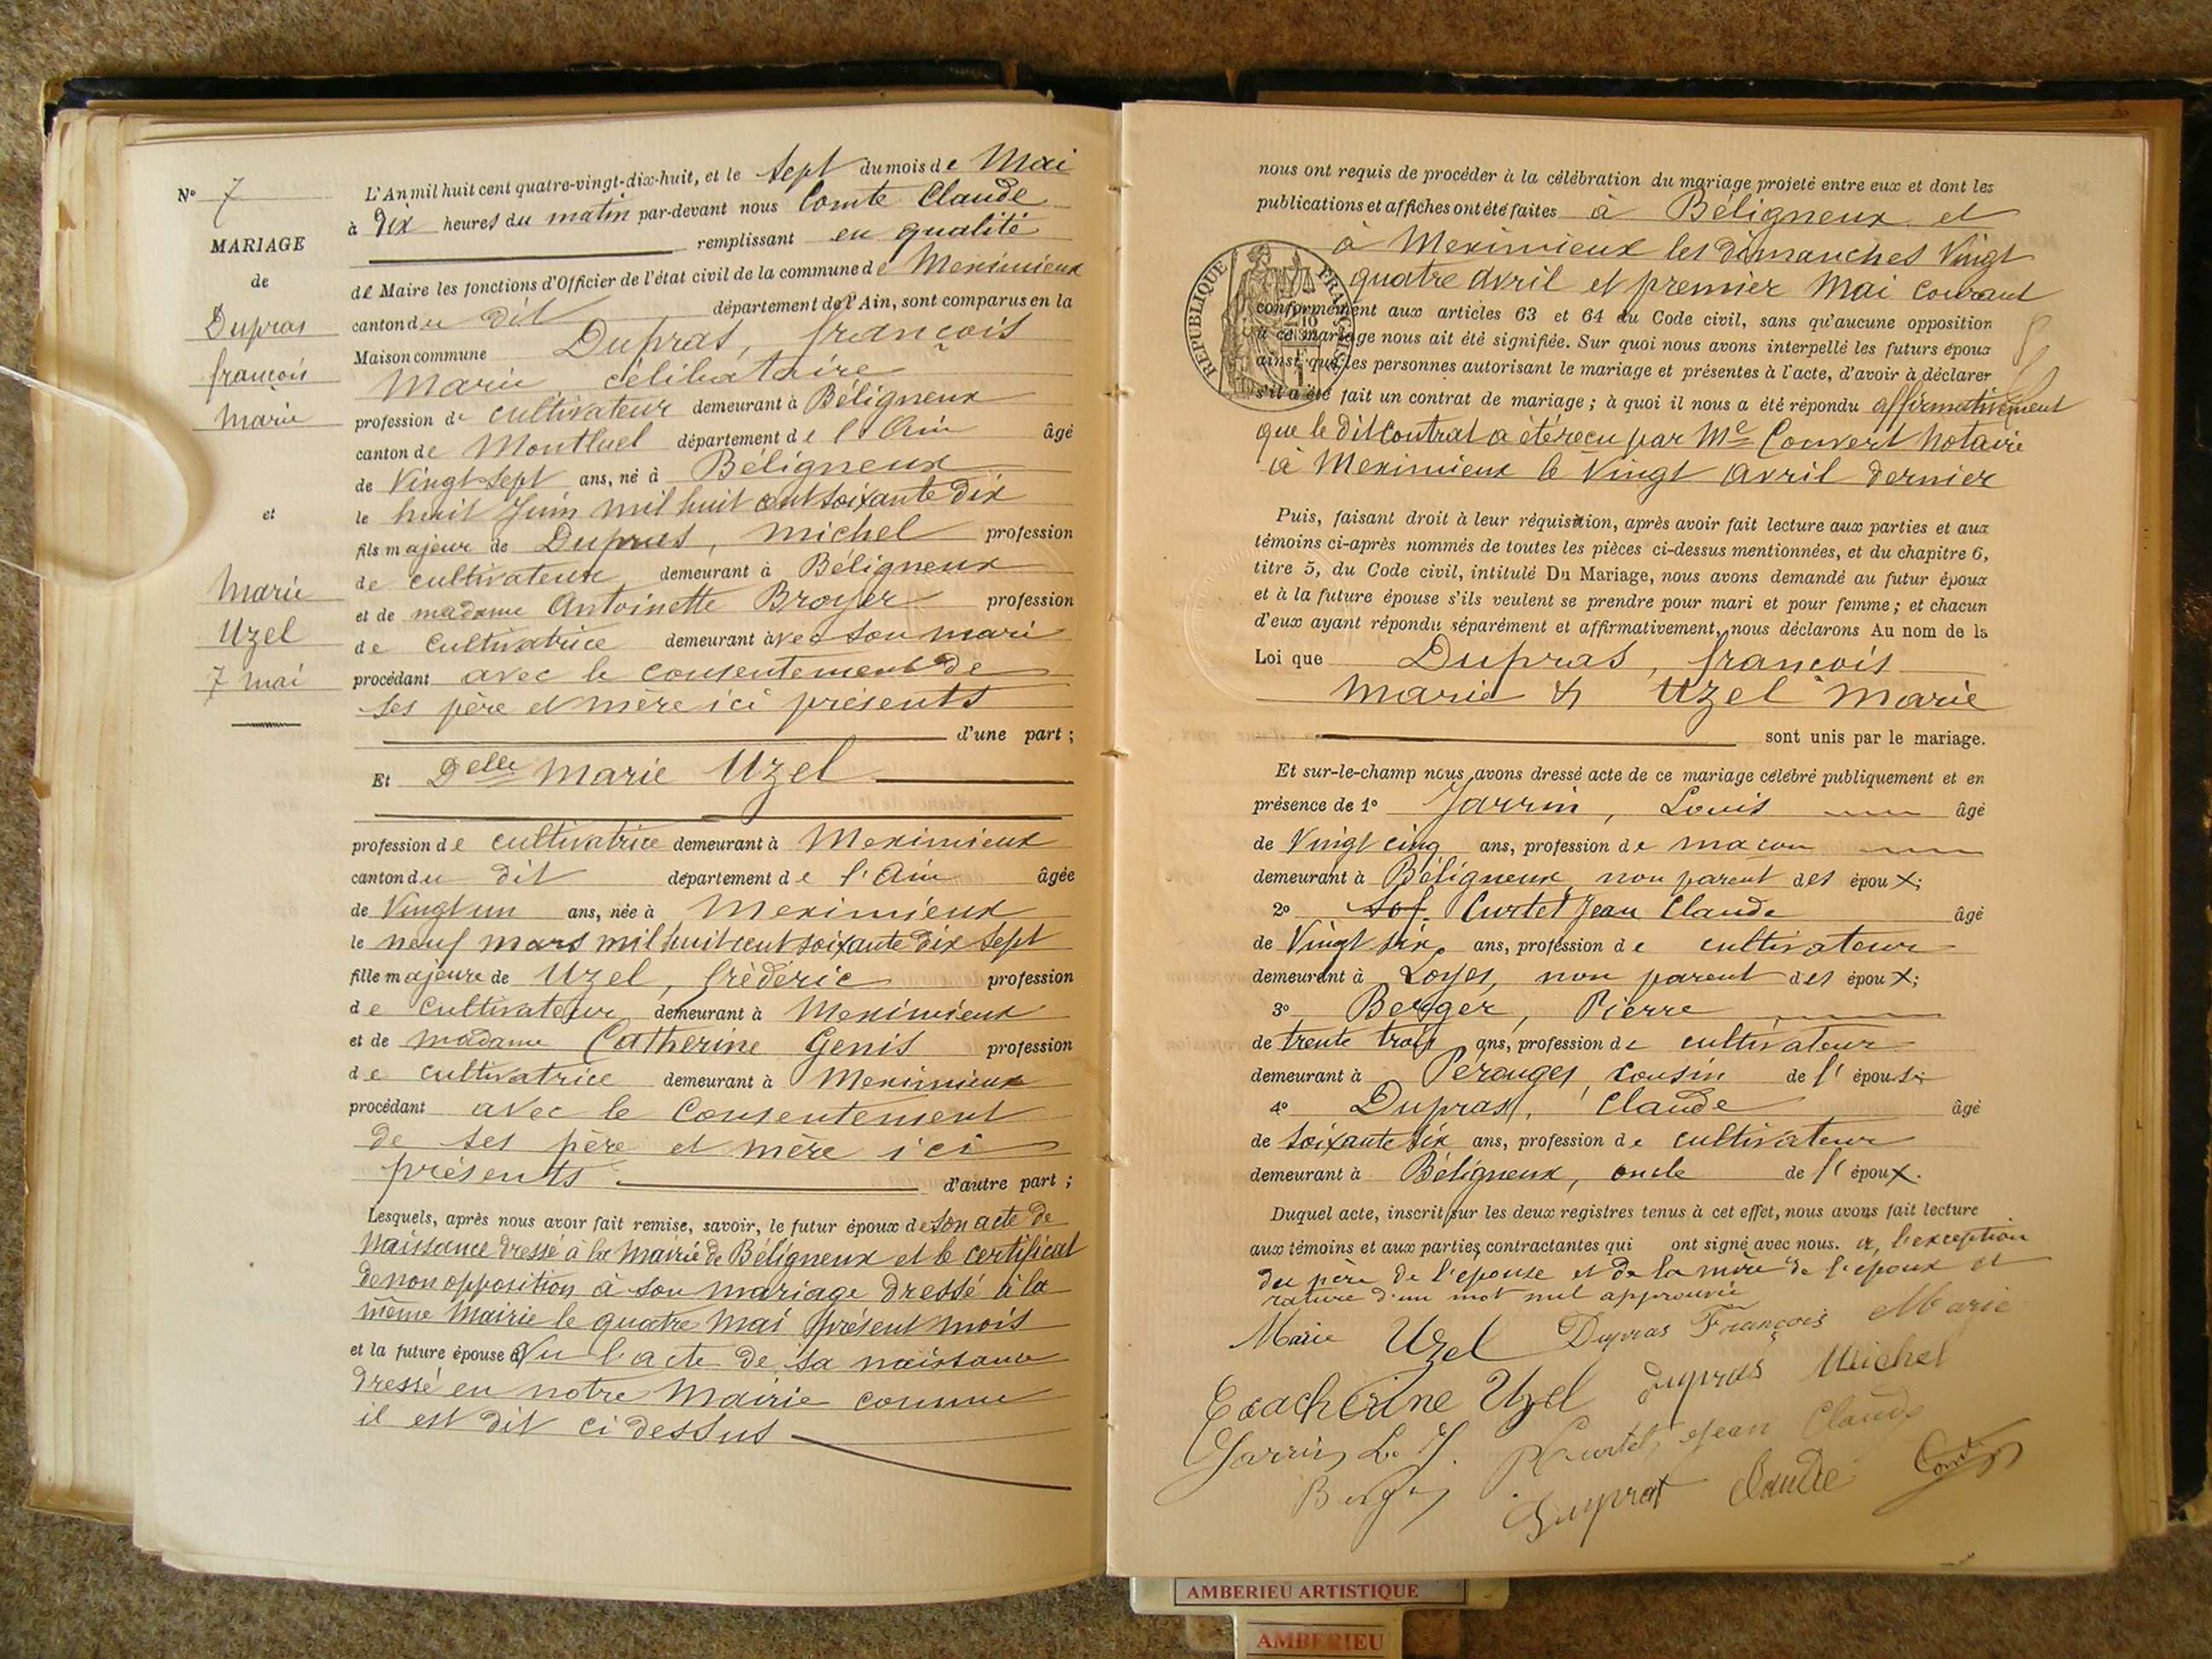 N° 7
MARIAGE
de
Dupras
françois
marie
et
Marie
Uzel
7 mai
L'An mil huit cent quatre-vingt-dix-huit, et le Sept du mois de Mai
à Dix heures du matin par-devant nous Comte Claude
remplissant en qualité
de Maire les fonctions d'Officier de l'état civil de la commune de Meximieux
canton du dit département de l'Ain, sont comparus en la
Maison commune Dupras, françois
Marie, célibataire
profession de cultivateur demeurant à Béligneux
canton de Montluel département de l'Ain âgé
de Vingt sept ans, né à Béligneux
le huit Juin mil huit cent soixante dix
fils majeur de Dupras, Michel profession
de cultivateur demeurant à Béligneux
et de madame Antoinette Broyer profession
de cultivatrice demeurant avec son mari
procédant avec le consentement de
ses père et mère ici présents
d'une part ;
Et Delle Marie Uzel
profession de cultivatrice demeurant à Meximieux
canton du dit département de l'Ain âgée
de Vingt un ans, née à Meximieux
le neuf mars mil huit cent soixante dix sept
fille majeure de Uzel, frédéric profession
de cultivateur demeurant à Meximieux
et de madame Catherine Genis profession
de cultivatrice demeurant à Meximieux
procédant avec le Consentement
de ses père et mère ici
présents d'autre part ;
Lesquels, après nous avoir fait remise, savoir, le futur époux de son acte de
Naissance dressé à la Mairie de Béligneux et le certificat
de non opposition à son mariage dressé à la
même Mairie le quatre Mai présent mois
et la future épouse Vu l'acte de sa naissance
dressé en notre Mairie comme
il est dit ci dessus
nous ont requis de procéder à la célébration du mariage projeté entre eux et dont les
publications et affiches ont été faites à Béligneux et
à Meximieux les dimanches Vingt
quatre avril et premier Mai courant
REPUBLIQUE FRANÇAISE
conformément aux articles 63 et 64 du Code civil, sans qu'aucune opposition
à ce mariage nous ait été signifiée. Sur quoi nous avons interpellé les futurs époux
ainsi que les personnes autorisant le mariage et présentes à l'acte, d'avoir à déclarer
s'il a été fait un contrat de mariage ; à quoi il nous a été répondu affirmativement
que le dit Contrat a été reçu par Me Convert Notaire
à Meximieux le Vingt avril dernier
Puis, faisant droit à leur réquisition, après avoir fait lecture aux parties et aux
témoins ci-après nommés de toutes les pièces ci-dessus mentionnées, et du chapitre 6,
titre 5, du Code civil, intitulé Du Mariage, nous avons demandé au futur époux
et à la future épouse s'ils veulent se prendre pour mari et pour femme ; et chacun
d'eux ayant répondu séparément et affirmativement, nous déclarons Au nom de la
Loi que Dupras, françois
Marie & Uzel Marie
sont unis par le mariage.
Et sur-le-champ nous avons dressé acte de ce mariage célébré publiquement et en
présence de 1° Jarrin, Louis âgé
de Vingt cinq ans, profession de maçon
demeurant à Béligneux non parent des époux;
2° Curtet Jean Claude âgé
de Vingt six ans, profession de cultivateur
demeurant à Loyes, non parent des époux;
3° Berger, Pierre
de trente trois ans, profession de cultivateur
demeurant à Pérouges, cousin de l'épouse
4° Dupras, Claude âgé
de soixante six ans, profession de cultivateur
demeurant à Béligneux, oncle de l'époux.
Duquel acte, inscrit sur les deux registres tenus à cet effet, nous avons fait lecture
aux témoins et aux parties contractantes qui ont signé avec nous. à l'exception
du père de l'épouse et de la mère de l'époux et
rature d'un mot nul approuvée
Marie Uzel Dupras François Marie
Uzel Dupras Michel
Jarrin L. J. Curtet Jean Claude
Berger Dupras Claude Comte
AMBERIEU ARTISTIQUE
AMBERIEU